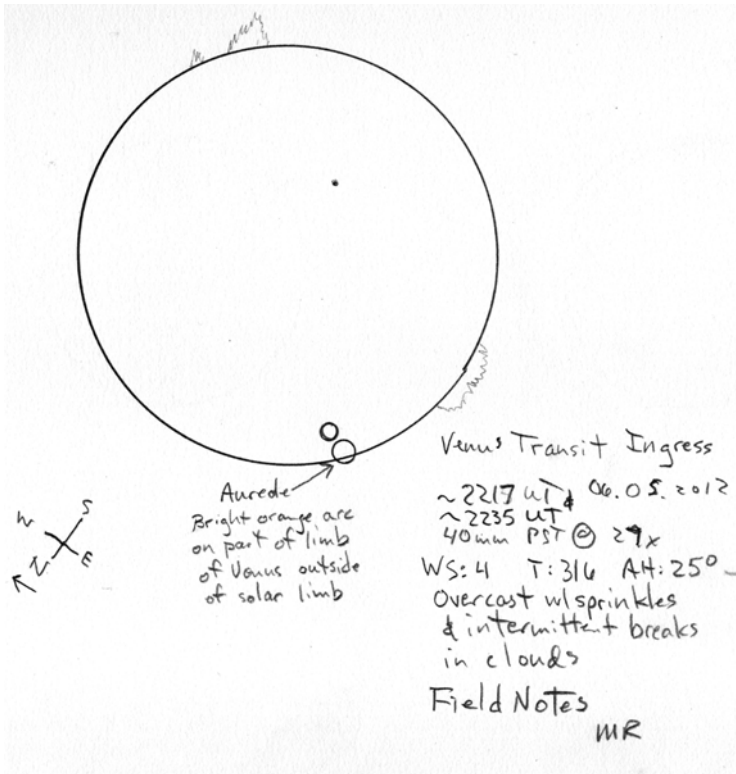 Aurede
Bright orange arc
on part of limb
of Venus outside
of solar limb
W S
N E
Venus Transit Ingress
~2217 UT & 06.05.2012
~2235 UT
40mm PST @ 29x
WS: 4 T: 3/6 AH: 25°
Overcast w/sprinkles
& intermittent breaks
in clouds
Field Notes
MR